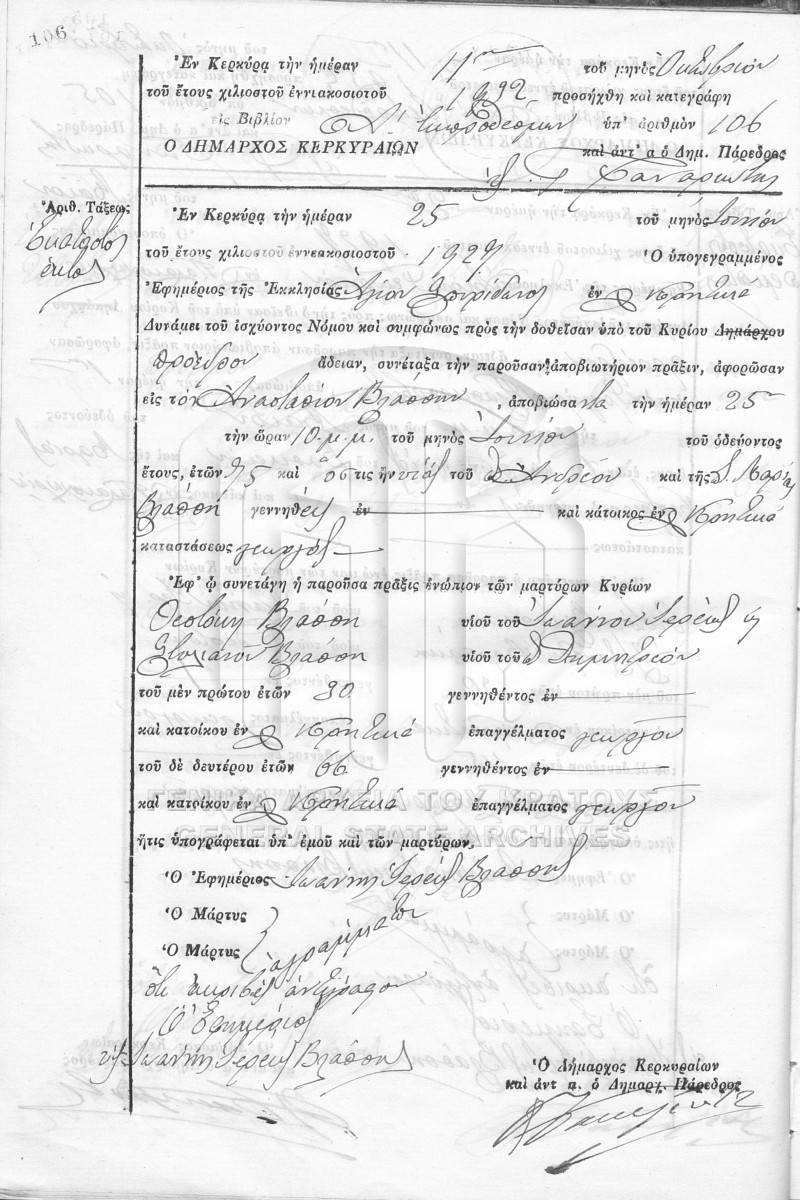 106
Ἐν Κερκύρᾳ τὴν ἡμέραν 11ην τοῦ μηνὸς Ὀκτωβρίου
τοῦ ἔτους χιλιοστοῦ ἐννιακοσιοτοῦ προσήχθη καὶ κατεγράφη
εἰς Βιβλίον Α. Ἐκπροθέσμων ὑπ' ἀριθμὸν 106
Ο ΔΗΜΑΡΧΟΣ ΚΕΡΚΥΡΑΙΩΝ καὶ ἀντ' α ὁ Δημ. Πάρεδρος
Ἀριθ. Τάξεως
Ἑκατοστὸς
ἕκτος
Ἐν Κερκύρᾳ τὴν ἡμέραν 25 τοῦ μηνὸς Ἰουνίου
τοῦ ἔτους χιλιοστοῦ ἐννεακοσιοστοῦ 1929 Ὁ ὑπογεγραμμένος
Ἐφημέριος τῆς Ἐκκλησίας Ἁγίου Σπυρίδωνος ἐν Κρητικά
Δυνάμει τοῦ ἰσχύοντος Νόμου καὶ συμφώνως πρὸς τὴν δοθεῖσαν ὑπὸ τοῦ Κυρίου Δημάρχου
προέδρου ἄδειαν, συνέταξα τὴν παροῦσαν ἀποβιωτήριον πρᾶξιν, ἀφορῶσαν
εἰς τὸν Ἀναστάσιον Βλάσση, ἀποβιώσαντα τὴν ἡμέραν 25
τὴν ὥραν 10 μ.μ. τοῦ μηνὸς Ἰουνίου τοῦ ὁδεύοντος
ἔτους, ἐτῶν 75 καὶ ὅστις ἦν υἱὸς τοῦ Ἀνδρέου καὶ τῆς Μαρίας
Βλάσση γεννηθεὶς ἐν καὶ κάτοικος ἐν Κρητικά
καταστάσεως γεωργὸς
Ἐφ' ᾧ συνετάγη ἡ παροῦσα πρᾶξις ἐνώπιον τῶν μαρτύρων Κυρίων
Θεοτόκη Βλάσση υἱοῦ τοῦ Ἰωάννου Ἱερέως
Στυλιανοῦ Βλάσση υἱοῦ τοῦ Δημητρίου
τοῦ μὲν πρώτου ἐτῶν 30 γεννηθέντος ἐν
καὶ κατοίκου ἐν Κρητικά ἐπαγγέλματος γεωργοῦ
τοῦ δὲ δευτέρου ἐτῶν 66 γεννηθέντος ἐν
καὶ κατοίκου ἐν Κρητικά ἐπαγγέλματος γεωργοῦ
ΓΕΝΙΚΑ ΑΡΧΕΙΑ ΤΟΥ ΚΡΑΤΟΥΣ
GENERAL STATE ARCHIVES
ἥτις ὑπογράφεται ὑπ' ἐμοῦ καὶ τῶν μαρτύρων.
Ὁ Ἐφημέριος Ἰωάννης Ἱερεὺς Βλάσσης
Ὁ Μάρτυς
Ὁ Μάρτυς ἀγράμματοι
Ὅτι ἀκριβὲς ἀντίγραφον
Ὁ Ἐφημέριος
Ἰωάννης Ἱερεὺς Βλάσσης
Ὁ Δήμαρχος Κερκυραίων
καὶ ἀντ α. ὁ Δημαρχ. Πάρεδρος